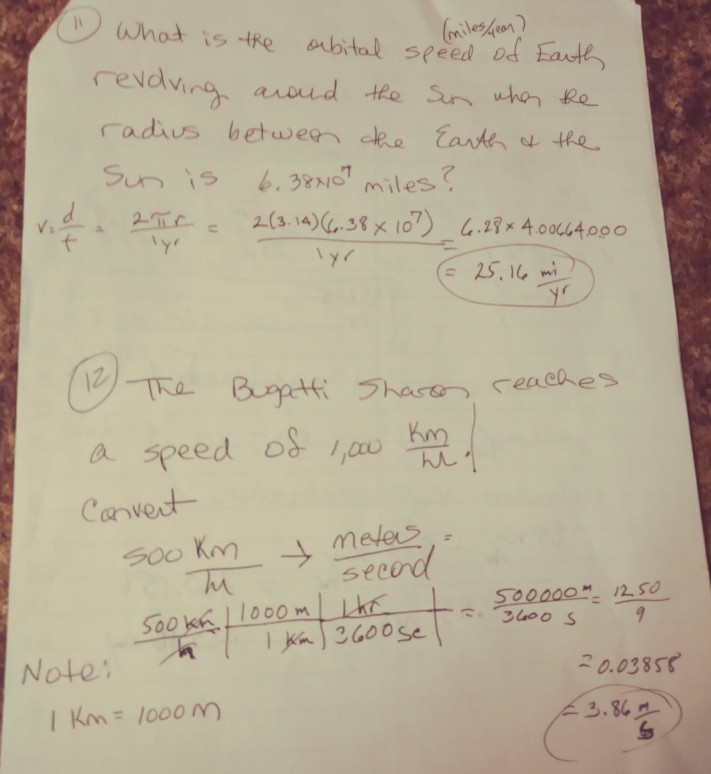 11 What is the orbital speed of Earth (miles/year)
revolving around the Sun when the
radius between the Earth & the
Sun is 6.38x10⁷ miles?
v = d/t = 2πr/1yr = 2(3.14)(6.38 x 10⁷)/1yr = 6.28 x 4.00664000
= 25.16 mi/yr
12 The Bugatti Sharon reaches
a speed of 1,000 Km/hr.
Convert
500 Km/hr → meters/second =
500 km/h | 1000 m/1 Km | 1 hr/3600 se | = 500000 m/3600 s = 1250/9
= 0.03858
Note:
1 Km = 1000 m
= 3.86 m/s